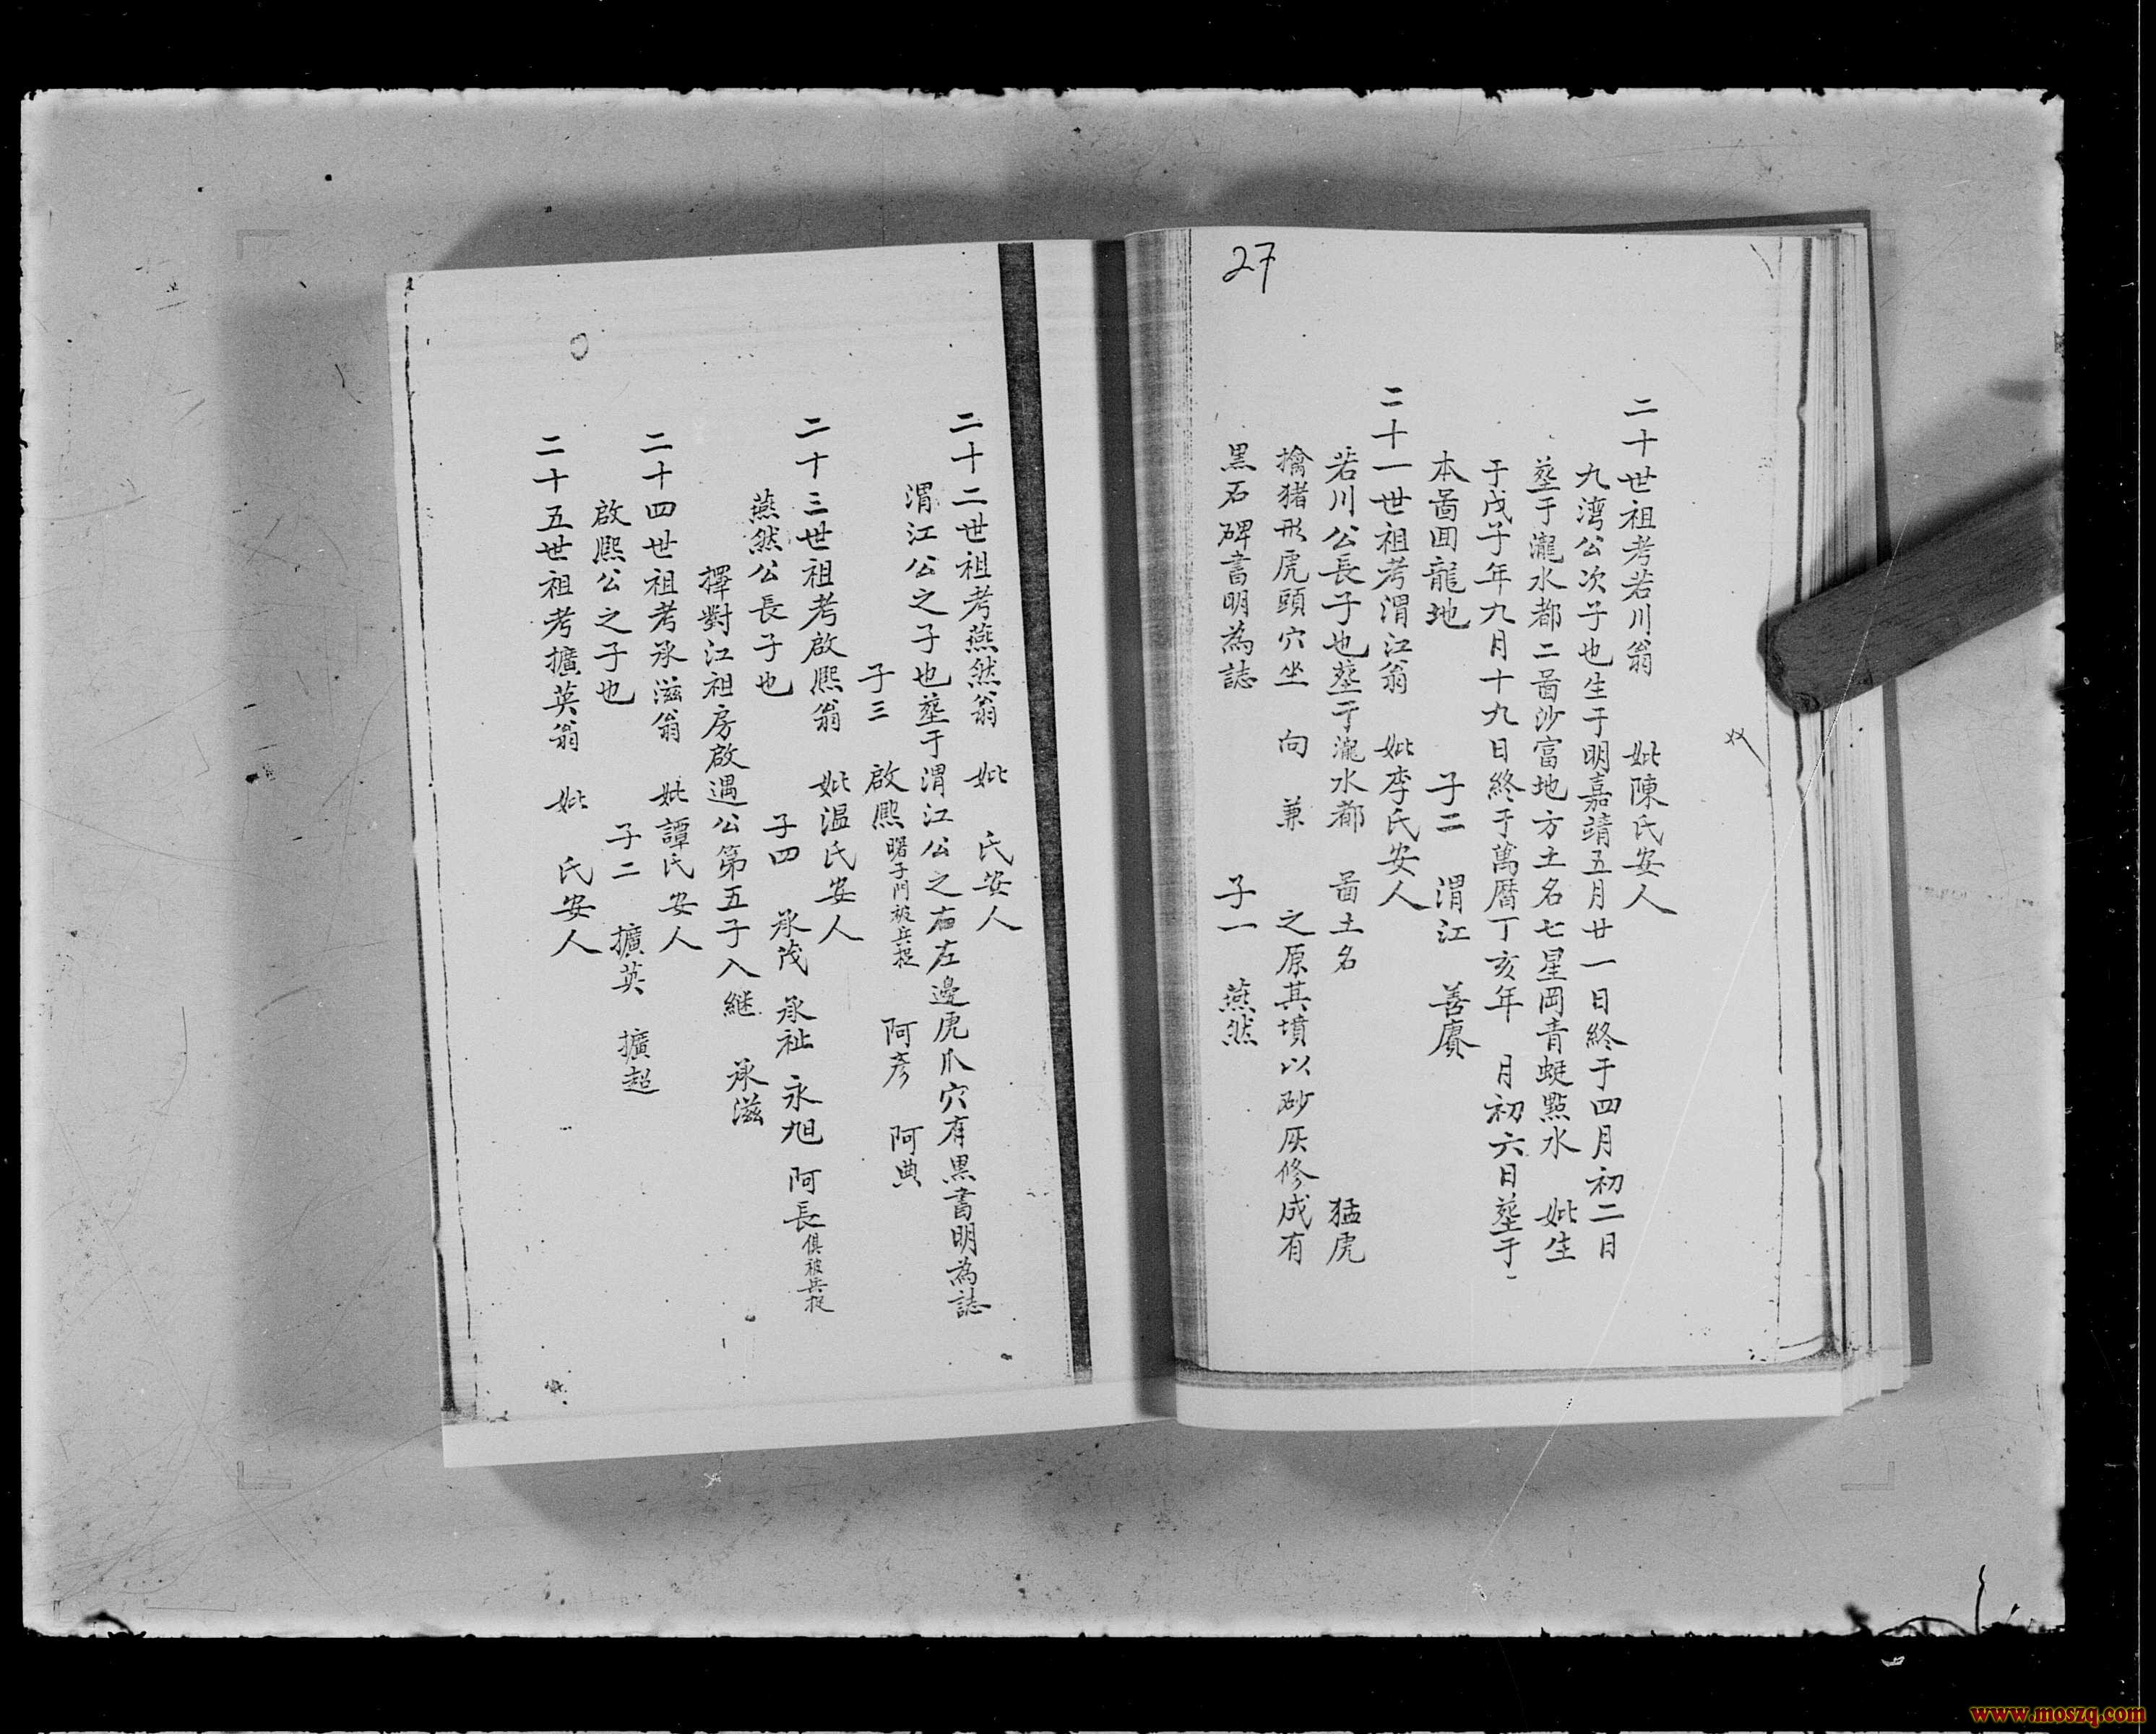 27
二十世祖考若川翁 妣陳氏安人
九湾公次子也生于明嘉靖五月廿一日終于四月初二日
塟于瀧水都二啚沙富地方土名七星岡青蜓點水 妣生
于戊子年九月十九日終于萬曆丁亥年 月初六日塟于
本啚田龍地 子二 渭江 善賡
二十一世祖考渭江翁 妣李氏安人
若川公長子也塟于瀧水都 啚土名 猛虎
擒猪形虎頭穴坐 向 兼 之原其墳以砂灰修成有
黒石碑書明為誌 子一 燕然
二十二世祖考燕然翁 妣 氏安人
渭江公之子也塟于渭江公之右左邊虎爪穴有黒書明為誌
子三 啟熈曙子門被兵捉 阿彥 阿典
二十三世祖考啟熈翁 妣温氏安人
燕然公長子也 子四 承茂 承祉 永旭 阿長俱被兵捉
擇對江祖房啟遇公第五子入継 承滋
二十四世祖考承滋翁 妣譚氏安人
啟熈公之子也 子二 擴英 擴超
二十五世祖考擴英翁 妣 氏安人
www.moszq.com